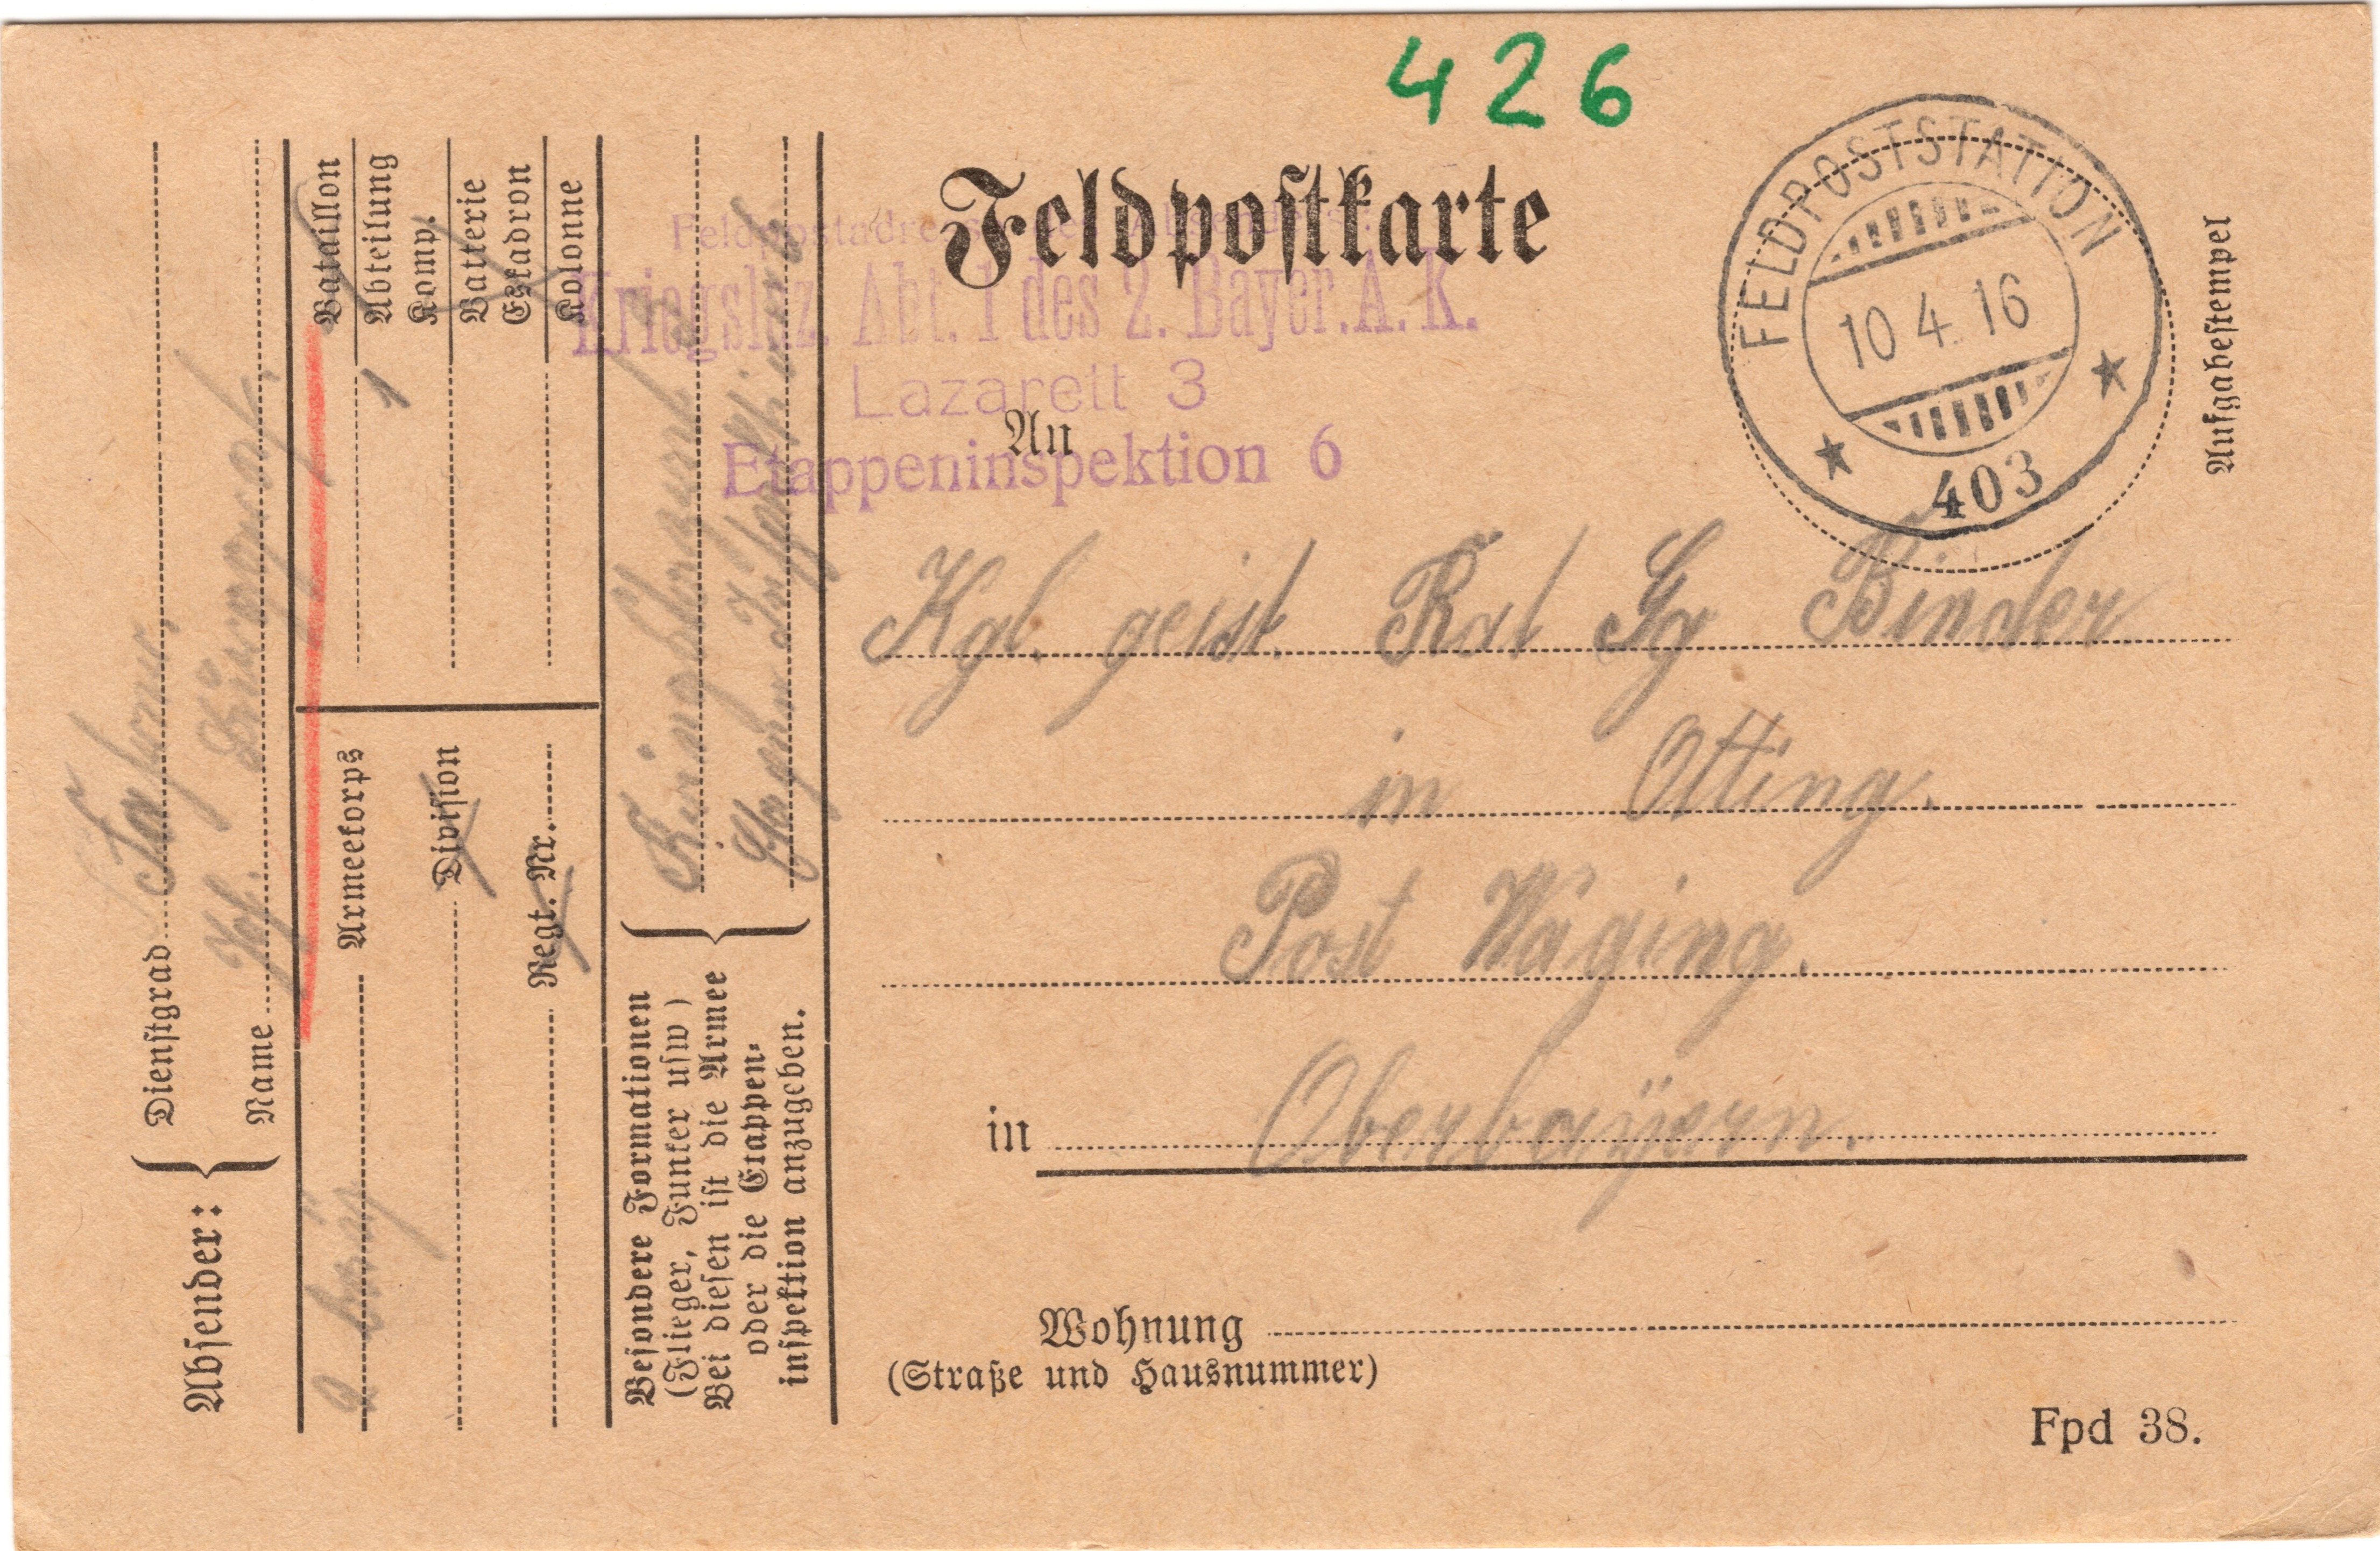 426
Feldpostkarte
FELDPOSTSTATION
10 4. 16
403
Aufgabestempel
Feldpostadresse des Absenders:
Kriegslaz. Abt. 1 des 2. Bayer. A. K.
Lazarett 3
Etappeninspektion 6
An
Kgl. geist. Rat Gg Binder
in Otting.
Post Waging.
in Oberbayern.
Wohnung
(Straße und Hausnummer)
Fpd 38.
Absender:
Dienstgrad
Name Joh.
2 bay Armeekorps
Bataillon
Abteilung 1
Division
Komp.
Batterie
Regt. Nr.
Eskadron
Kolonne
Besondere Formationen
(Flieger, Funker usw)
Bei diesen ist die Armee
oder die Etappen-
inspektion anzugeben.
Kriegslazarett